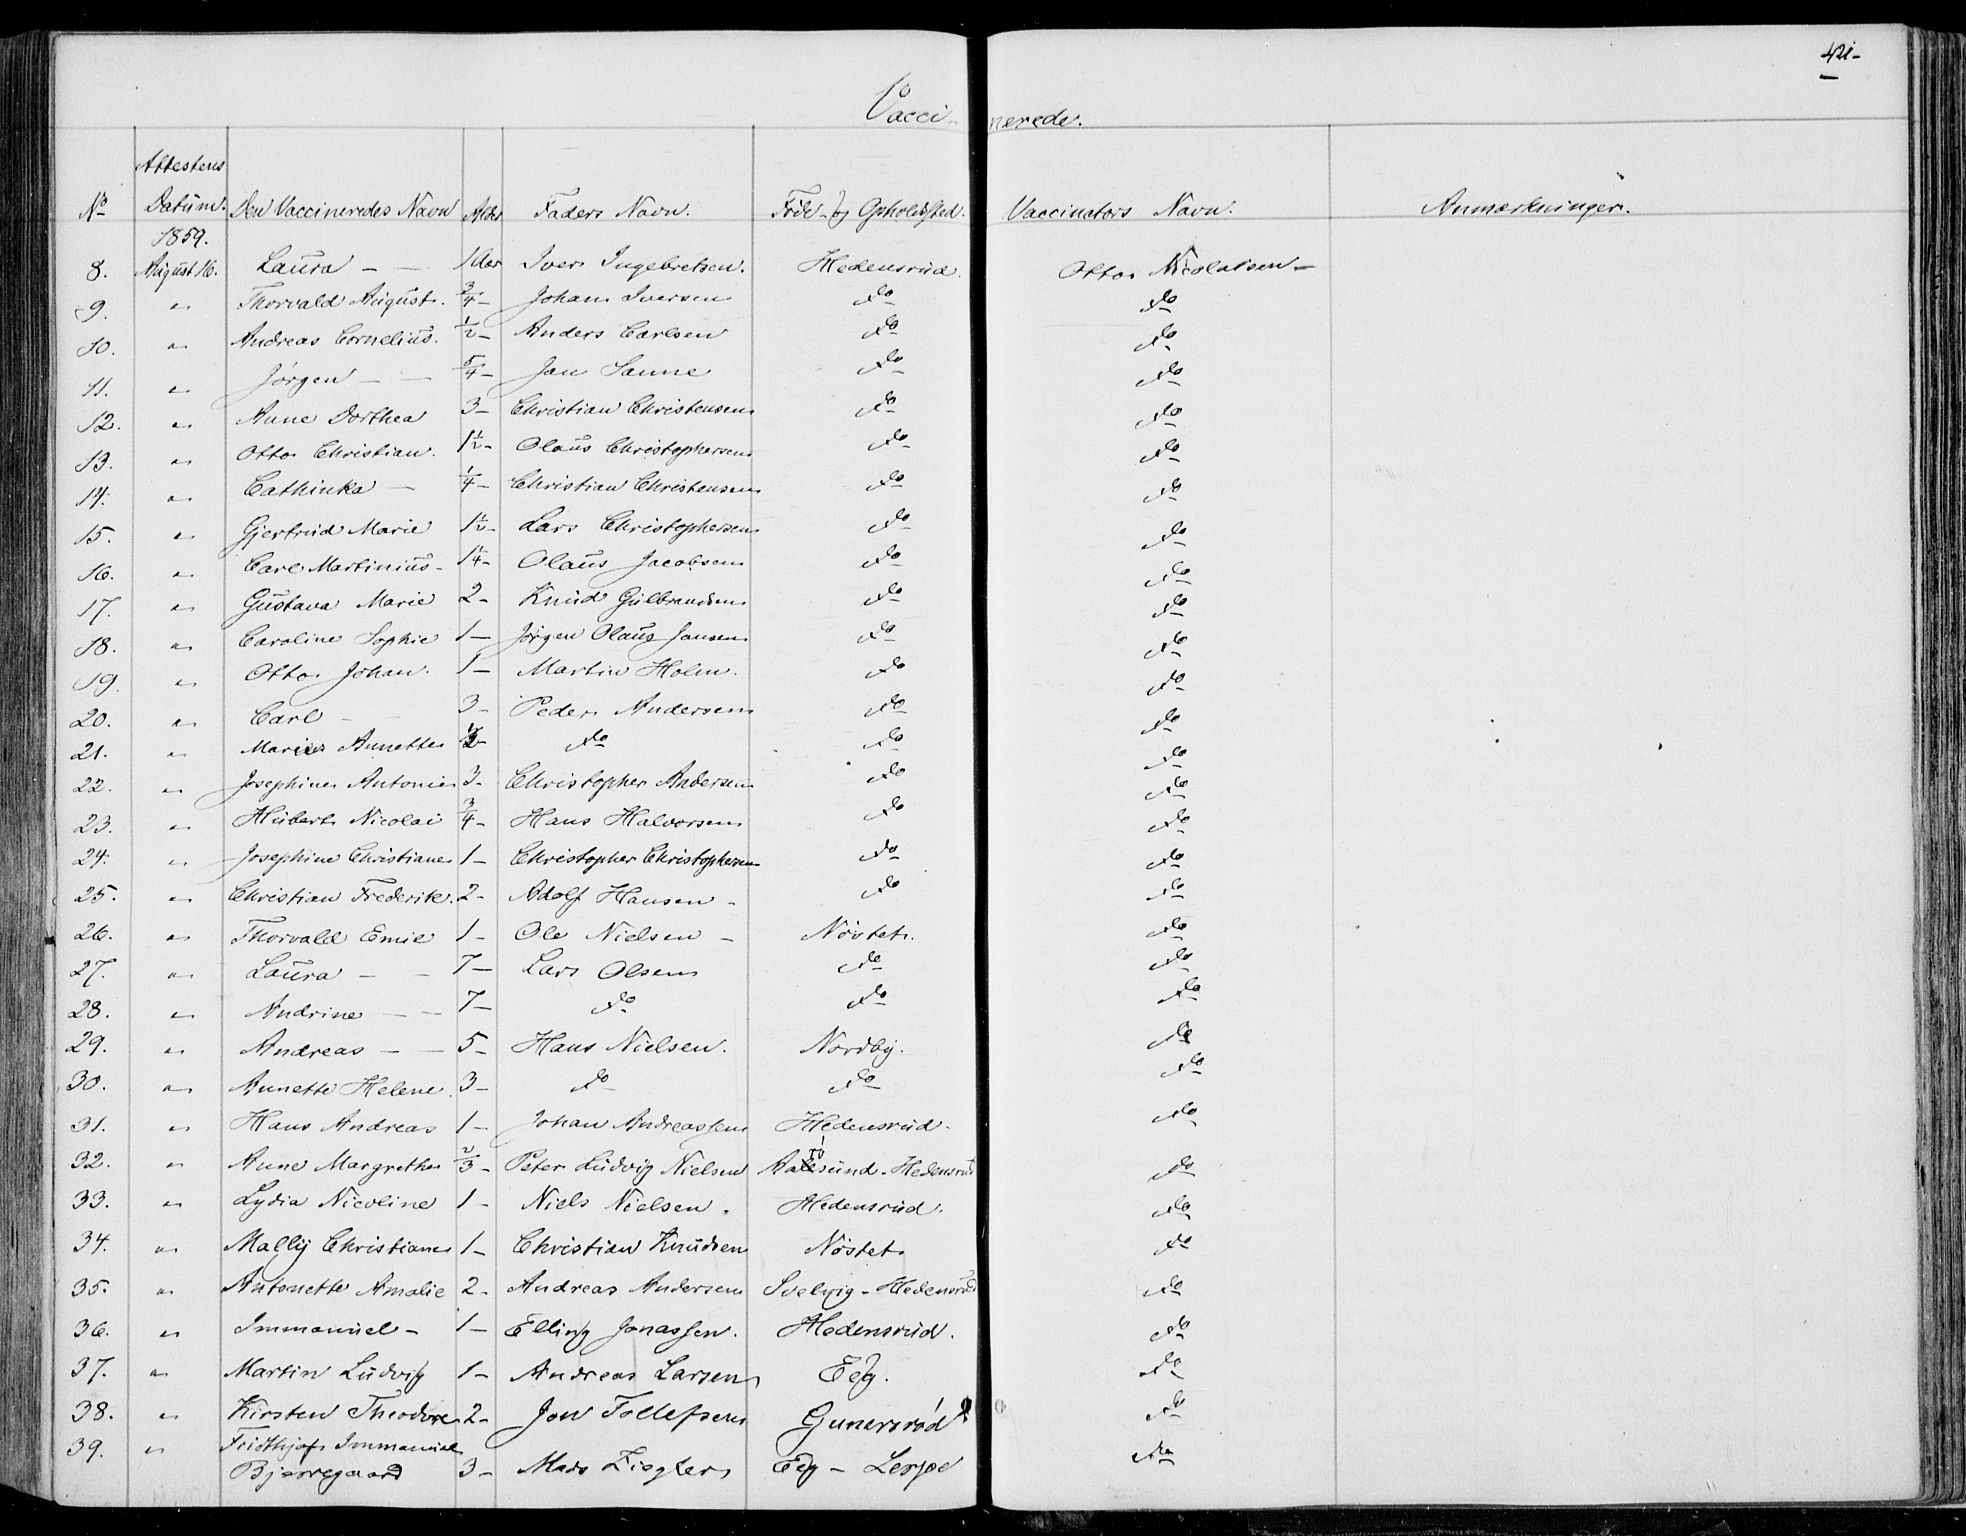 421-
Vaccinerede.
No Attestens Datum. Den Vaccineredes Navn Alder Faders Navn. Føde- og Opholdsted. Vaccinators Navn. Anmærkninger.
1859.
8. August 16. Laura - - 1 Aar Iver Ingebretsen. Hedensrud. Otto Nicolaisen -
9. " Thorvald August. 3/4 - Johan Iversen do do
10. " Andreas Cornelius. 1/2 - Anders Carlsen do do
11. " Jørgen - - 5/4 - Jan Sanne do do
12. " Anne Dorthea 3 - Christian Christensen do do
13. " Otto Christian. 1 1/2 - Olaus Christophersen do do
14. " Cathinka - 1/4 - Christian Christensen do do
15. " Gjertrud Marie 1 1/2 - Lars Christophersen do do
16. " Carl Martinius - 1 1/4 - Olaus Jacobsen do do
17. " Gustava Marie 2 - Knud Gulbrandsen do do
18. " Caroline Sophie 1 - Jørgen Olaus Jansen do do
19. " Otto Johan. 1 - Martin Holm. do do
20. " Carl - - 3 - Peder Andersen do do
21. " Marie Annette 1/2 - do do do
22. " Josephine Antonie 3 - Christopher Andersen do do
23. " Hubert Nicolai 3/4 - Hans Halvorsen do do
24. " Josephine Christiane 1 - Christopher Christophersen do do
25. " Christian Frederik. 2 - Adolf Hansen - do do
26. " Thorvald Emil 1 - Ole Nielsen - Nøstet. do
27. " Laura - - 7 - Lars Olsen do do
28. " Andrine - - 7 - do do do
29. " Andreas - - 5 - Hans Nielsen. Nordby. do
30. " Annette Helene. 3 - do do do
31. " Hans Andreas 1 - Johan Andreassen Hedensrud. do
32. " Anne Margrethe 2/3 - Peter Ludvig Nielsen Røsund - Hedensrud do
33. " Lydia Nicoline 1 - Niels Nielsen. Hedensrud. do
34. " Mally Christiane 1 - Christian Knudsen Nøstet do
35. " Antonette Amalie 2 - Andreas Andersen Svelvig - Hedensrud do
36. " Immanuel - 1 - Elling Jonassen. Hedensrud. do
37. " Martin Ludvig 1 - Andreas Larsen Eeg. do
38. " Kirsten Theodore 2 - Jon Tollefsen Gunersrød do
39. " Fridthjof Immanuel
Bjerregaard 3 - Mads Ziegler Eeg - Lersje do